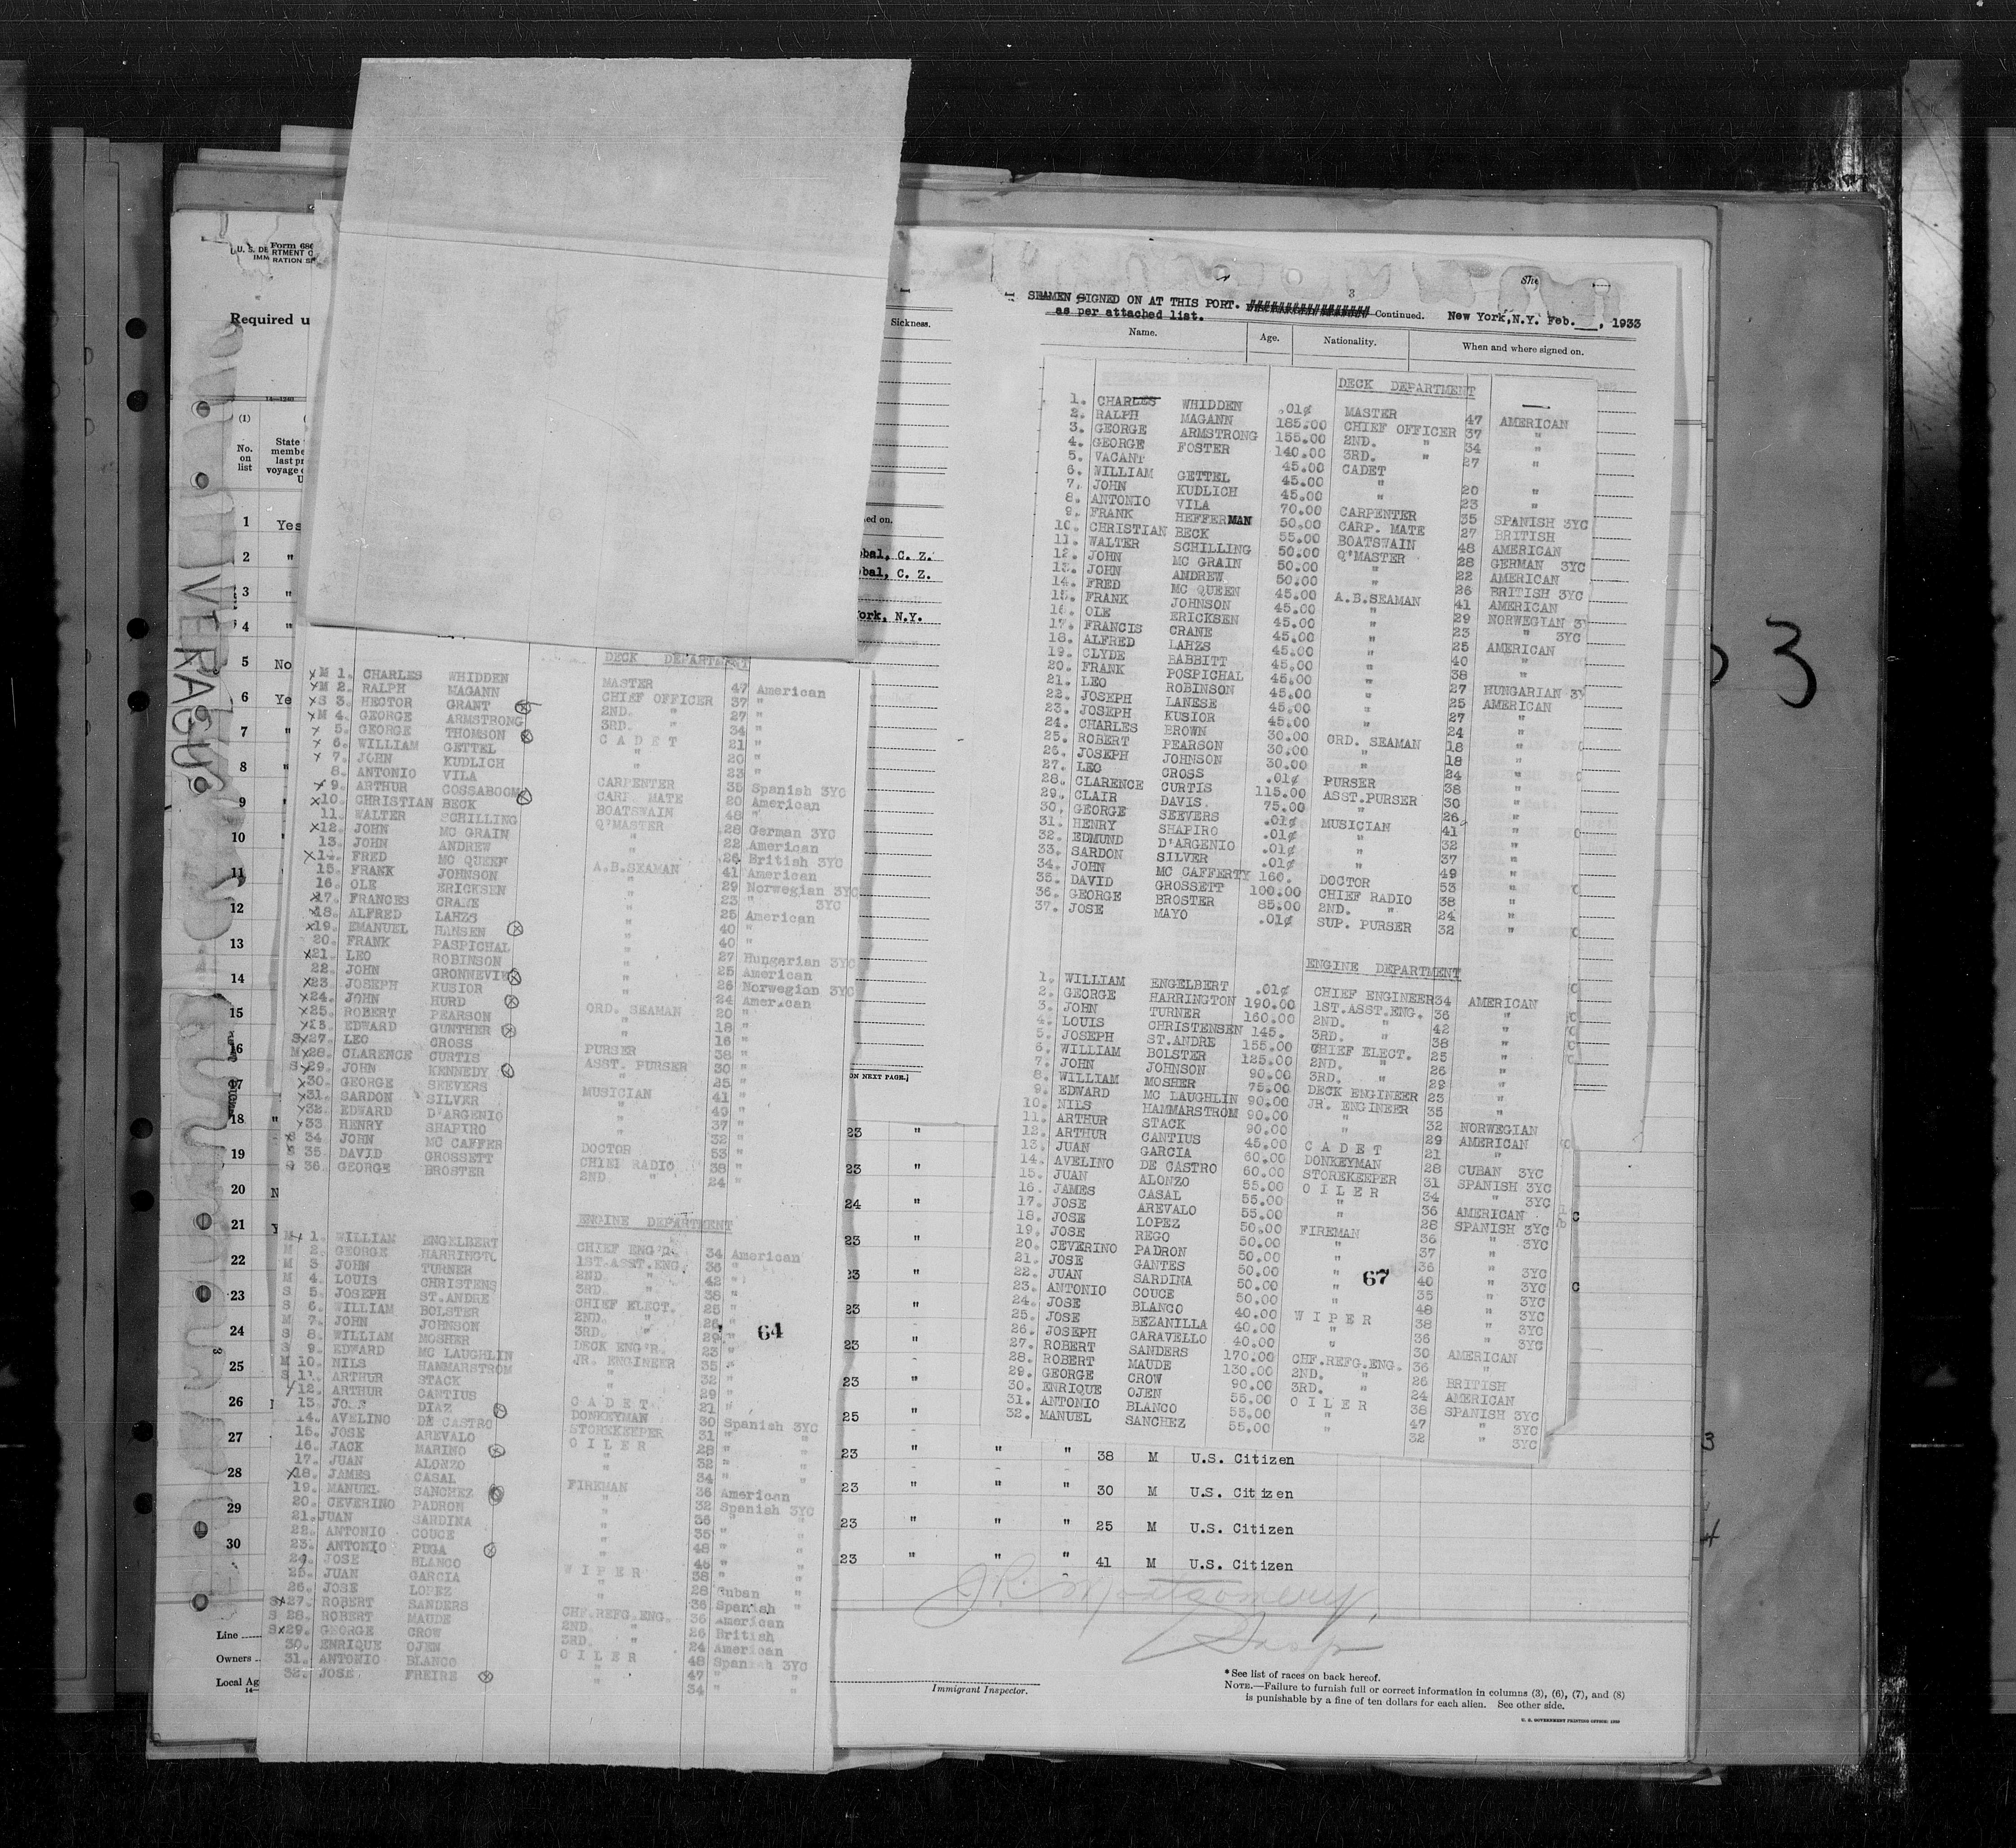 Form 686
U. S. DE RTMENT O
IMM RATION S
Required u
14—1240
(1)
No.
on
list
State
membe
last pr
voyage
U
1 Yes
2 "
3 "
4 "
5 No
6 Ye
7 "
8 "
9
10
11
12
13
14
15
16
17
18 "
19
20 N
21 Y
22
23
24
25
26
27
28
29
30
Line
Owners
Local Ag
VERAGUA
DECK DEPARTMENT
xM 1. CHARLES WHIDDEN MASTER 47 American
xM 2. RALPH MAGANN CHIEF OFFICER 37 "
xS 3. HECTOR GRANT 2ND. " 27 "
xM 4. GEORGE ARMSTRONG 3RD. " 34 "
x 5. GEORGE THOMSON CADET 21 "
x 6. WILLIAM GETTEL " 20 "
x 7. JOHN KUDLICH " 23 "
8. ANTONIO VILA CARPENTER 35 Spanish 3YC
x 9. ARTHUR COSSABOOM CARP. MATE 20 American
x10. CHRISTIAN BECK BOATSWAIN 48 "
11. WALTER SCHILLING Q'MASTER 28 German 3YC
x12. JOHN MC GRAIN " 22 American
13. JOHN ANDREW " 26 British 3YC
x14. FRED MC QUEEN A.B.SEAMAN 41 American
15. FRANK JOHNSON " 29 Norwegian 3YC
16. OLE ERICKSEN " 23 " 3YC
x17. FRANCES CRANE " 25 American
x18. ALFRED LAHZS " 40 "
x19. EMANUEL HANSEN " 40 "
20. FRANK PASPICHAL " 27 Hungarian 3YC
x21. LEO ROBINSON " 25 American
22. JOHN GRONNEVIK " 26 Norwegian 3YC
x23. JOSEPH KUSIOR " 24 American
x24. JOHN HURD ORD. SEAMAN 20 "
x25. ROBERT PEARSON " 18 "
x26. EDWARD GUNTHER " 16 "
Sx27. LEO CROSS PURSER 38 "
Mx28. CLARENCE CURTIS ASST. PURSER 30 "
Sx29. JOHN KENNEDY " 25 "
x30. GEORGE SEEVERS MUSICIAN 41 "
x31. SARDON SILVER " 49 "
x32. EDWARD D'ARGENIO " 37 "
x33 HENRY SHAPIRO " 32 "
S 34. JOHN MC CAFFER DOCTOR 53 "
S 35. DAVID GROSSETT CHIEF RADIO 38 "
S 36. GEORGE BROSTER 2ND. " 24 "
ENGINE DEPARTMENT
Mx 1. WILLIAM ENGELBERT CHIEF ENG'R. 34 American
M 2. GEORGE HARRINGT. 1ST.ASST.ENG. 36 "
M 3. JOHN TURNER 2ND. " 42 "
M 4. LOUIS CHRISTENS 3RD. " 38 "
S 5. JOSEPH ST.ANDRE CHIEF ELECT. 25 "
S 6. WILLIAM BOLSTER 2ND. " 26 "
M 7. JOHN JOHNSON 3RD. " 29 "
S 8. WILLIAM MOSHER DECK ENG'R. 23 "
S 9. EDWARD MC LAUGHLIN JR. ENGINEER 35 "
M 10. NILS HAMMARSTROM " 32 "
S 11. ARTHUR STACK " 29 "
x12. ARTHUR CANTIUS CADET 21 "
13. JOSE DIAZ DONKEYMAN 30 Spanish 3YC
14. AVELINO DE CASTRO STOREKEEPER 31 " "
15. JOSE AREVALO OILER 28 " "
16. JACK MARINO " 32 " "
17. JUAN ALONZO " 34 " "
x18. JAMES CASAL FIREMAN 36 American
19. MANUEL SANCHEZ " 32 Spanish 3YC
20. CEVERINO PADRON " 36 " "
21. JUAN SARDINA " 35 " "
22. ANTONIO COUCE " 48 " "
23. ANTONIO PUGA " 46 " "
24. JOSE BLANCO WIPER 38 " "
25. JUAN GARCIA " 28 Cuban "
26. JOSE LOPEZ " 36 Spanish "
Sx27. ROBERT SANDERS CHF.REFG.ENG. 36 American
S 28. ROBERT MAUDE 2ND. " 26 British
Sx29. GEORGE CROW 3RD. " 24 American
30. ENRIQUE OJEN OILER 48 Spanish 3YC
31. ANTONIO BLANCO " 47 " "
32. JOSE FREIRE " 34 " "
64
Sickness.
ed on.
obal, C. Z.
obal, C. Z.
York, N.Y.
ON NEXT PAGE.]
3
SEAMEN SIGNED ON AT THIS PORT. Continued. New York, N.Y. Feb. , 1933
as per attached list.
Name. Age. Nationality. When and where signed on.
DECK DEPARTMENT
1. CHARLES WHIDDEN .01¢ MASTER 47 AMERICAN
2. RALPH MAGANN 185.00 CHIEF OFFICER 37 "
3. GEORGE ARMSTRONG 155.00 2ND. " 34 "
4. GEORGE FOSTER 140.00 3RD. " 27 "
5. VACANT 45.00 CADET
6. WILLIAM GETTEL 45.00 " 20 "
7. JOHN KUDLICH 45.00 " 23 "
8. ANTONIO VILA 70.00 CARPENTER 35 SPANISH 3YC
9. FRANK HEFFERMAN 50.00 CARP. MATE 27 BRITISH
10. CHRISTIAN BECK 55.00 BOATSWAIN 48 AMERICAN
11. WALTER SCHILLING 50.00 Q'MASTER 28 GERMAN 3YC
12. JOHN MC GRAIN 50.00 " 22 AMERICAN
13. JOHN ANDREW 50.00 " 26 BRITISH 3YC
14. FRED MC QUEEN 45.00 A.B.SEAMAN 41 AMERICAN
15. FRANK JOHNSON 45.00 " 29 NORWEGIAN 3Y
16. OLE ERICKSEN 45.00 " 23 " 3YC
17. FRANCIS CRANE 45.00 " 25 AMERICAN
18. ALFRED LAHZS 45.00 " 40 "
19. CLYDE BABBITT 45.00 " 38 "
20. FRANK POSPICHAL 45.00 " 27 HUNGARIAN 3Y
21. LEO ROBINSON 45.00 " 25 AMERICAN
22. JOSEPH LANESE 45.00 " 27 "
23. JOSEPH KUSIOR 45.00 " 24 "
24. CHARLES BROWN 30.00 ORD. SEAMAN 18 "
25. ROBERT PEARSON 30.00 " 18 "
26. JOSEPH JOHNSON 30.00 " 24 "
27. LEO CROSS .01¢ PURSER 38 "
28. CLARENCE CURTIS 115.00 ASST.PURSER 30 "
29. CLAIR DAVIS. 75.00 " 26 "
30. GEORGE SEEVERS .01¢ MUSICIAN 41 "
31. HENRY SHAPIRO .01¢ " 32 "
32. EDMUND D'ARGENIO .01¢ " 37 "
33. SARDON SILVER .01¢ " 49 "
34. JOHN MC CAFFERTY 160. DOCTOR 53 "
35. DAVID GROSSETT 100.00 CHIEF RADIO 38 "
36. GEORGE BROSTER 85.00 2ND. " 24 "
37. JOSE MAYO .01¢ SUP. PURSER 32 "
ENGINE DEPARTMENT
1. WILLIAM ENGELBERT .01¢ CHIEF ENGINEER 34 AMERICAN
2. GEORGE HARRINGTON 190.00 1ST.ASST.ENG. 36 "
3. JOHN TURNER 160.00 2ND. " 42 "
4. LOUIS CHRISTENSEN 145. 3RD. " 38 "
5. JOSEPH ST.ANDRE 155.00 CHIEF ELECT. 25 "
6. WILLIAM BOLSTER 125.00 2ND. " 26 "
7. JOHN JOHNSON 90.00 3RD. " 29 "
8. WILLIAM MOSHER 75.00 DECK ENGINEER 23 "
9. EDWARD MC LAUGHLIN 90.00 JR. ENGINEER 35 "
10. NILS HAMMARSTROM 90.00 " 32 NORWEGIAN
11. ARTHUR STACK 90.00 " 29 AMERICAN
12. ARTHUR CANTIUS 45.00 CADET 21 "
13. JUAN GARCIA 60.00 DONKEYMAN 28 CUBAN 3YC
14. AVELINO DE CASTRO 60.00 STOREKEEPER 31 SPANISH 3YC
15. JUAN ALONZO 55.00 OILER 34 " 3YC
16. JAMES CASAL 55.00 " 36 AMERICAN
17. JOSE AREVALO 55.00 " 28 SPANISH 3YC
18. JOSE LOPEZ 50.00 FIREMAN 36 " 3YC
19. JOSE REGO 50.00 " 37 "
20. CEVERINO PADRON 50.00 " 36 " 3YC
21. JOSE GANTES 50.00 " 40 " 3YC
22. JUAN SARDINA 50.00 " 35 " 3YC
23. ANTONIO COUCE 50.00 " 48 " 3YC
24. JOSE BLANCO 40.00 WIPER 38 " 3YC
25. JOSE BEZANILLA 40.00 " 36 " 3YC
26. JOSEPH CARAVELLO 40.00 " 30 AMERICAN
27. ROBERT SANDERS 170.00 CHF.REFG.ENG. 36 "
28. ROBERT MAUDE 130.00 2ND. " 26 BRITISH
29. GEORGE CROW 90.00 3RD. " 24 AMERICAN
30. ENRIQUE OJEN 55.00 OILER 38 SPANISH 3YC
31. ANTONIO BLANCO 55.00 " 47 " 3YC
32. MANUEL SANCHEZ 55.00 " 32 " 3YC
67
23 "
23 "
24 "
23 "
23 "
23 "
23 "
23 "
25 "
23 " " " 38 M U.S. Citizen
23 " " " 30 M U.S. Citizen
23 " " " 25 M U.S. Citizen
23 " " " 41 M U.S. Citizen
J R Montgomery,
Immigrant Inspector.
* See list of races on back hereof.
NOTE.—Failure to furnish full or correct information in columns (3), (6), (7), and (8)
is punishable by a fine of ten dollars for each alien. See other side.
U. S. GOVERNMENT PRINTING OFFICE: 1930
3
3
4